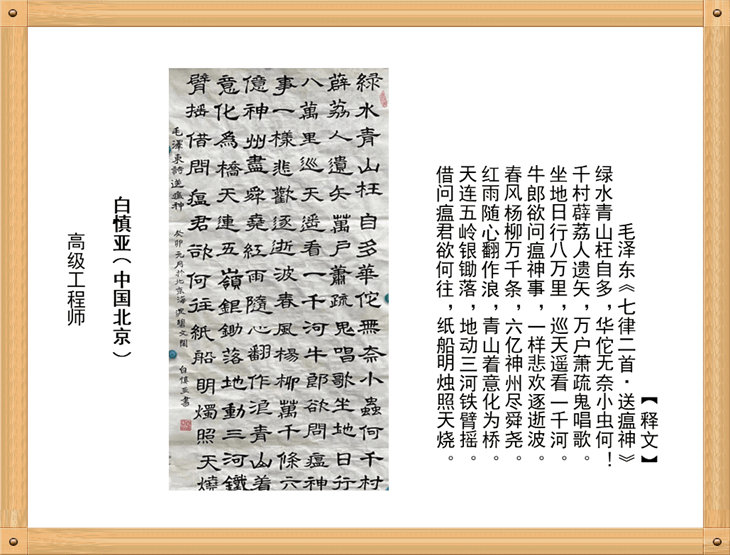 【释文】
毛泽东《七律二首·送瘟神》
绿水青山枉自多，华佗无奈小虫何！
千村薜荔人遗矢，万户萧疏鬼唱歌。
坐地日行八万里，巡天遥看一千河。
牛郎欲问瘟神事，一样悲欢逐逝波。
春风杨柳万千条，六亿神州尽舜尧。
红雨随心翻作浪，青山着意化为桥。
天连五岭银锄落，地动三河铁臂摇。
借问瘟君欲何往，纸船明烛照天烧。
綠水青山枉自多華佗無奈小蟲何千村
薜荔人遺矢萬户蕭疏鬼唱歌坐地日行
八萬里巡天遥看一千河牛郎欲問瘟神
事一樣悲歡逐逝波春風楊柳萬千條六
億神州盡舜堯紅雨隨心翻作浪青山着
意化為橋天連五嶺銀鋤落地動三河鐵
臂摇借問瘟君欲何往紙船明燭照天燒
毛澤東詩送瘟神 癸卯元月於北京海淀 白慎亚書
白慎亚（中国北京）
高级工程师